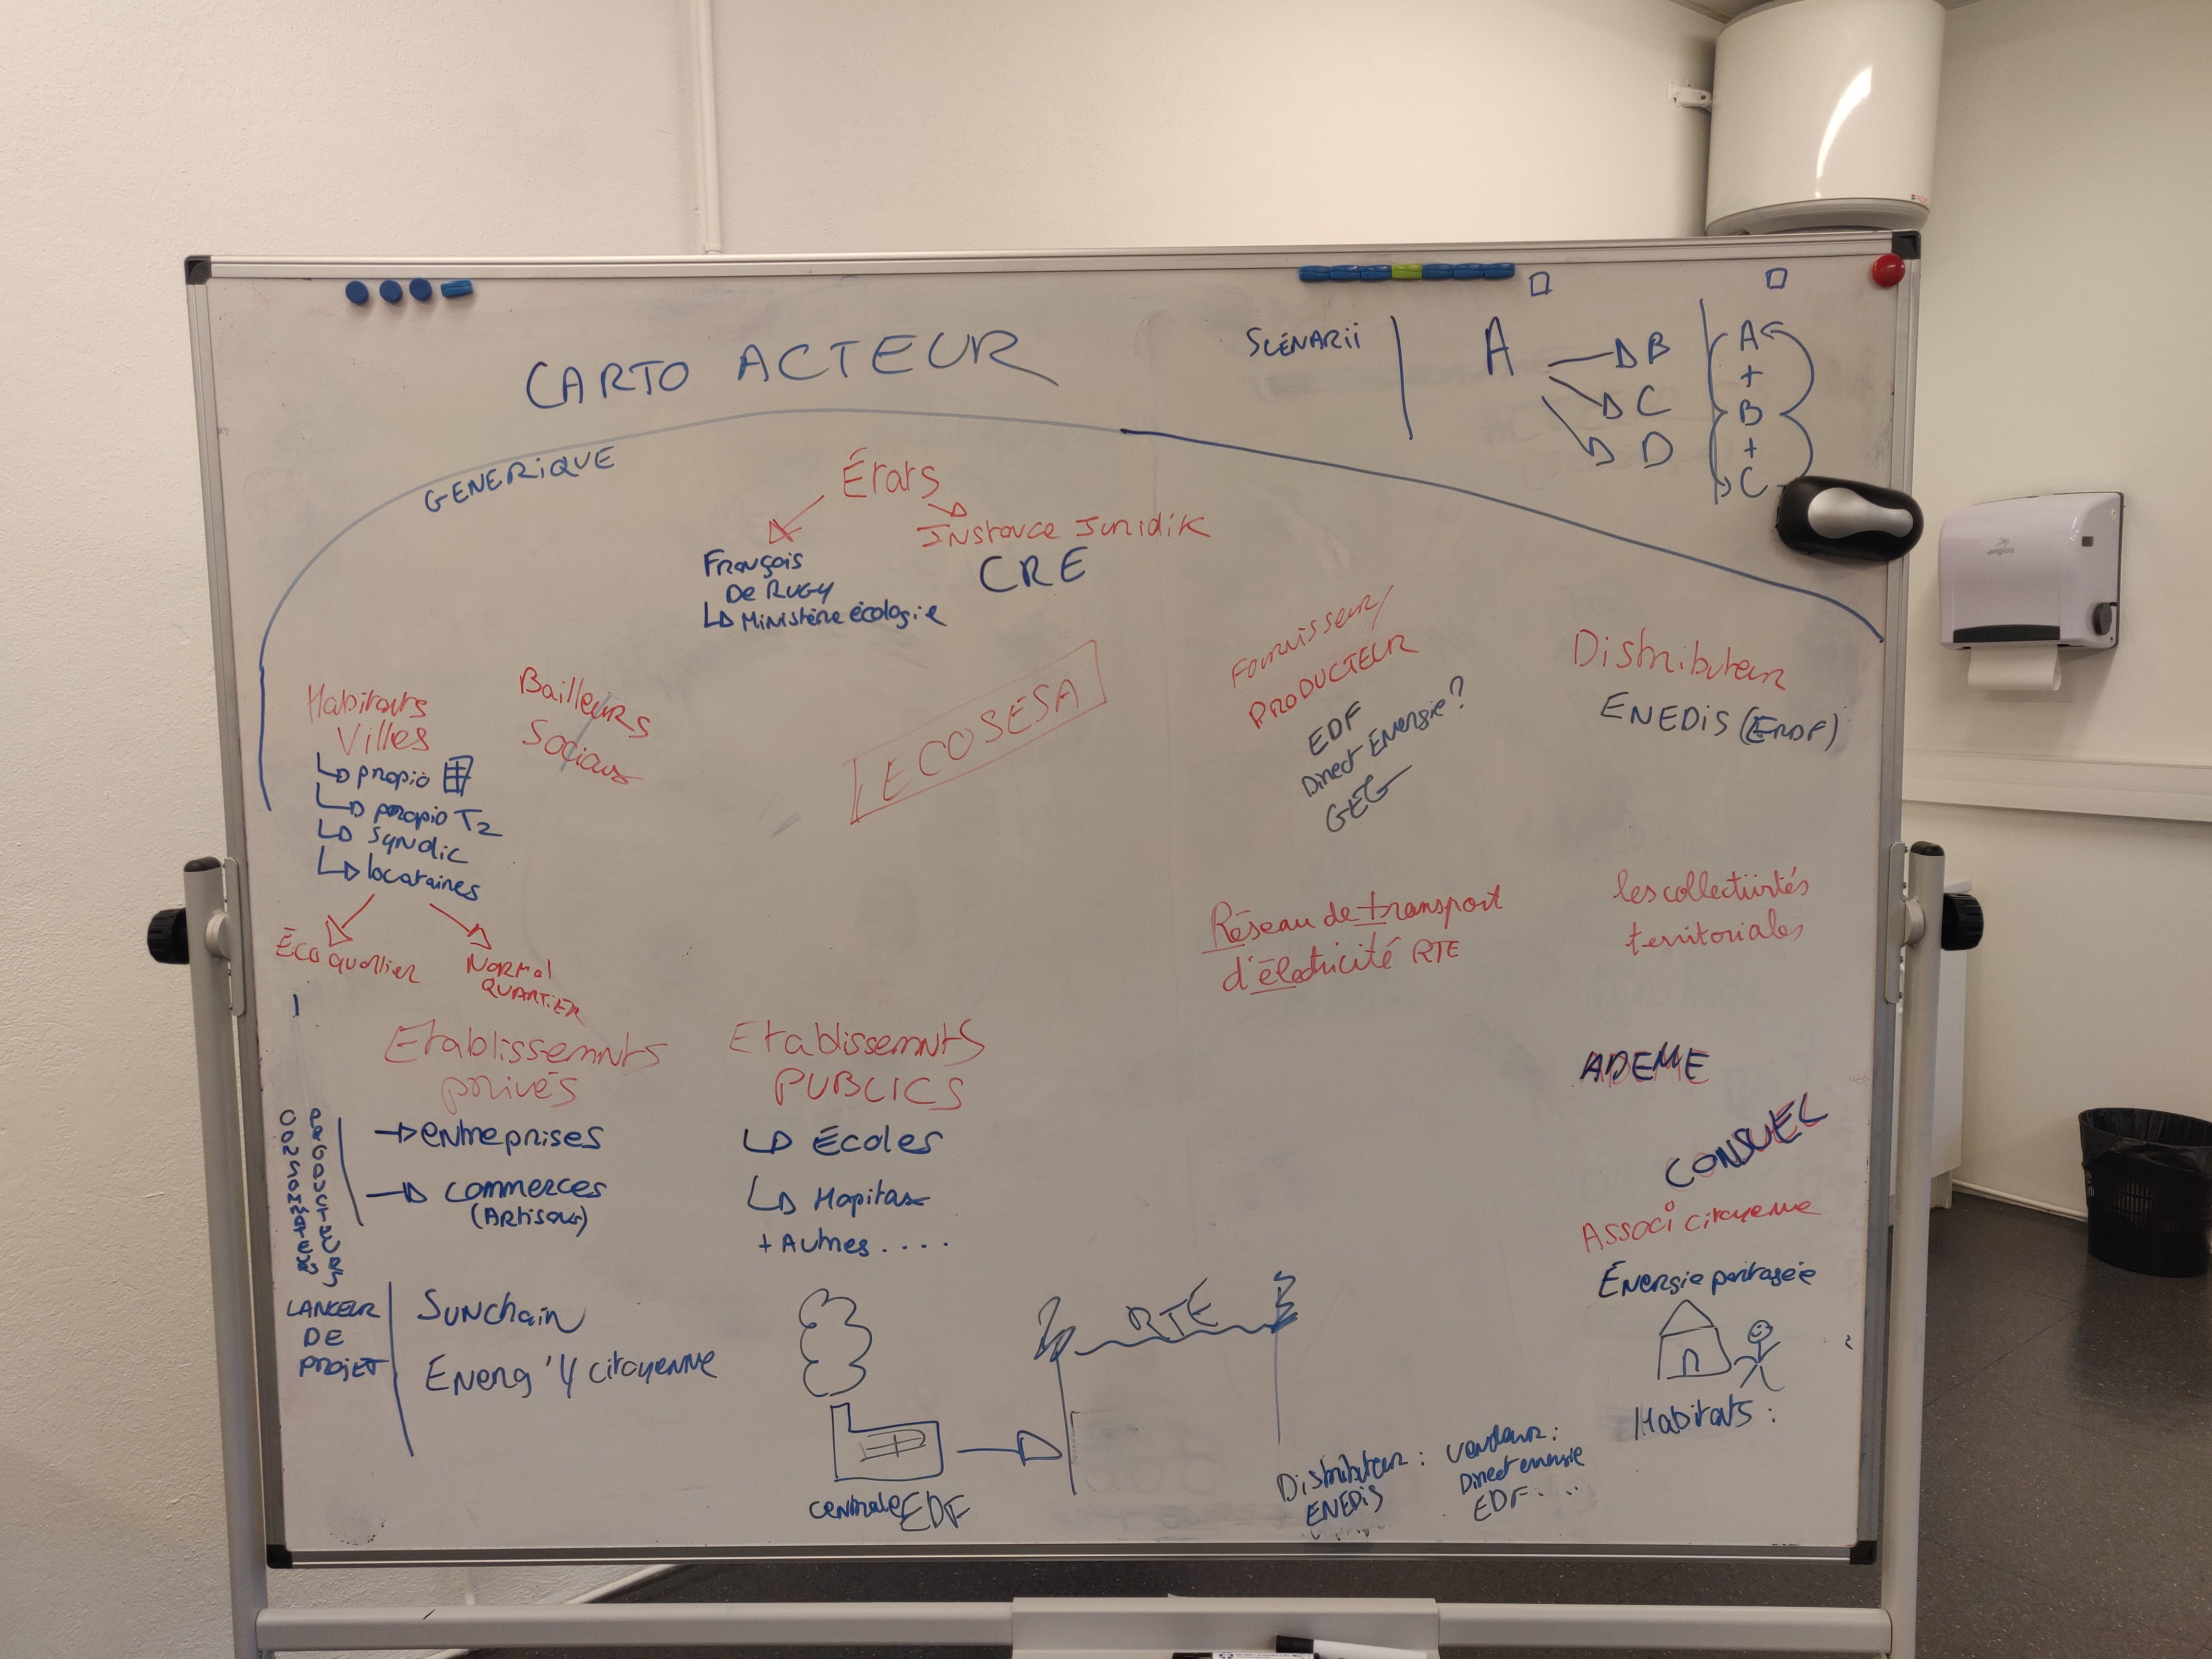 CARTO ACTEUR
SCÉNARii
A
B
C
D
A
+
B
+
C
GENERiQUE
États
INstance JuRidiK
CRE
François
De RUGY
Ministère écologie
argos
Habitants
Villes
propio
propio T2
Syndic
locataires
Éco quartier
NORMal
QUARTiER
Bailleurs
Sociaux
ECOSESA
Fournisseur/
PRODUCTEUR
EDF
Direct Énergie ?
GEG
Distributeur
ENEDiS (ERDF)
Réseau de transport
d'électricité RTE
les collectivités
territoriales
Etablissemnts
privés
entreprises
Commerces
(Artisans)
Etablissemnts
PUBLICS
Écoles
Hopitax
+ Autres ....
ADEME
CONSUEL
Associ citoyenne
Énergie partagée
Habitats :
PRODUCTEURS
CONSOMMATEURS
LANCEUR
DE
PROJET
SUNchain
Energ'Y citoyenne
RTE
centrale EDF
Distributeur :
ENEDiS
vendeur :
Direct energie
EDF ....